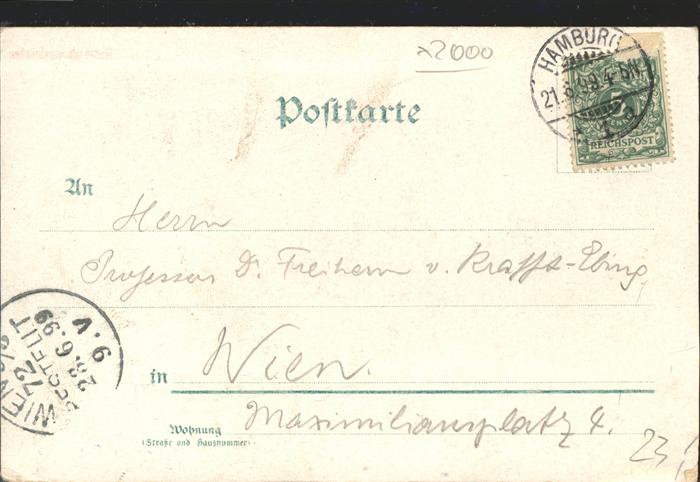 x2000
HAMBURG
21.6.99.4-5N.
1.
5
REICHSPOST
Postkarte
An
Herrn
Professor Dr. Freiherrn v. Krafft-Ebing,
in Wien.
Wohnung Maximiliansplatz 4.
(Straße und Hausnummer)
WIEN 9/3
72
BESTELLT
23.6.99
9.V
23/